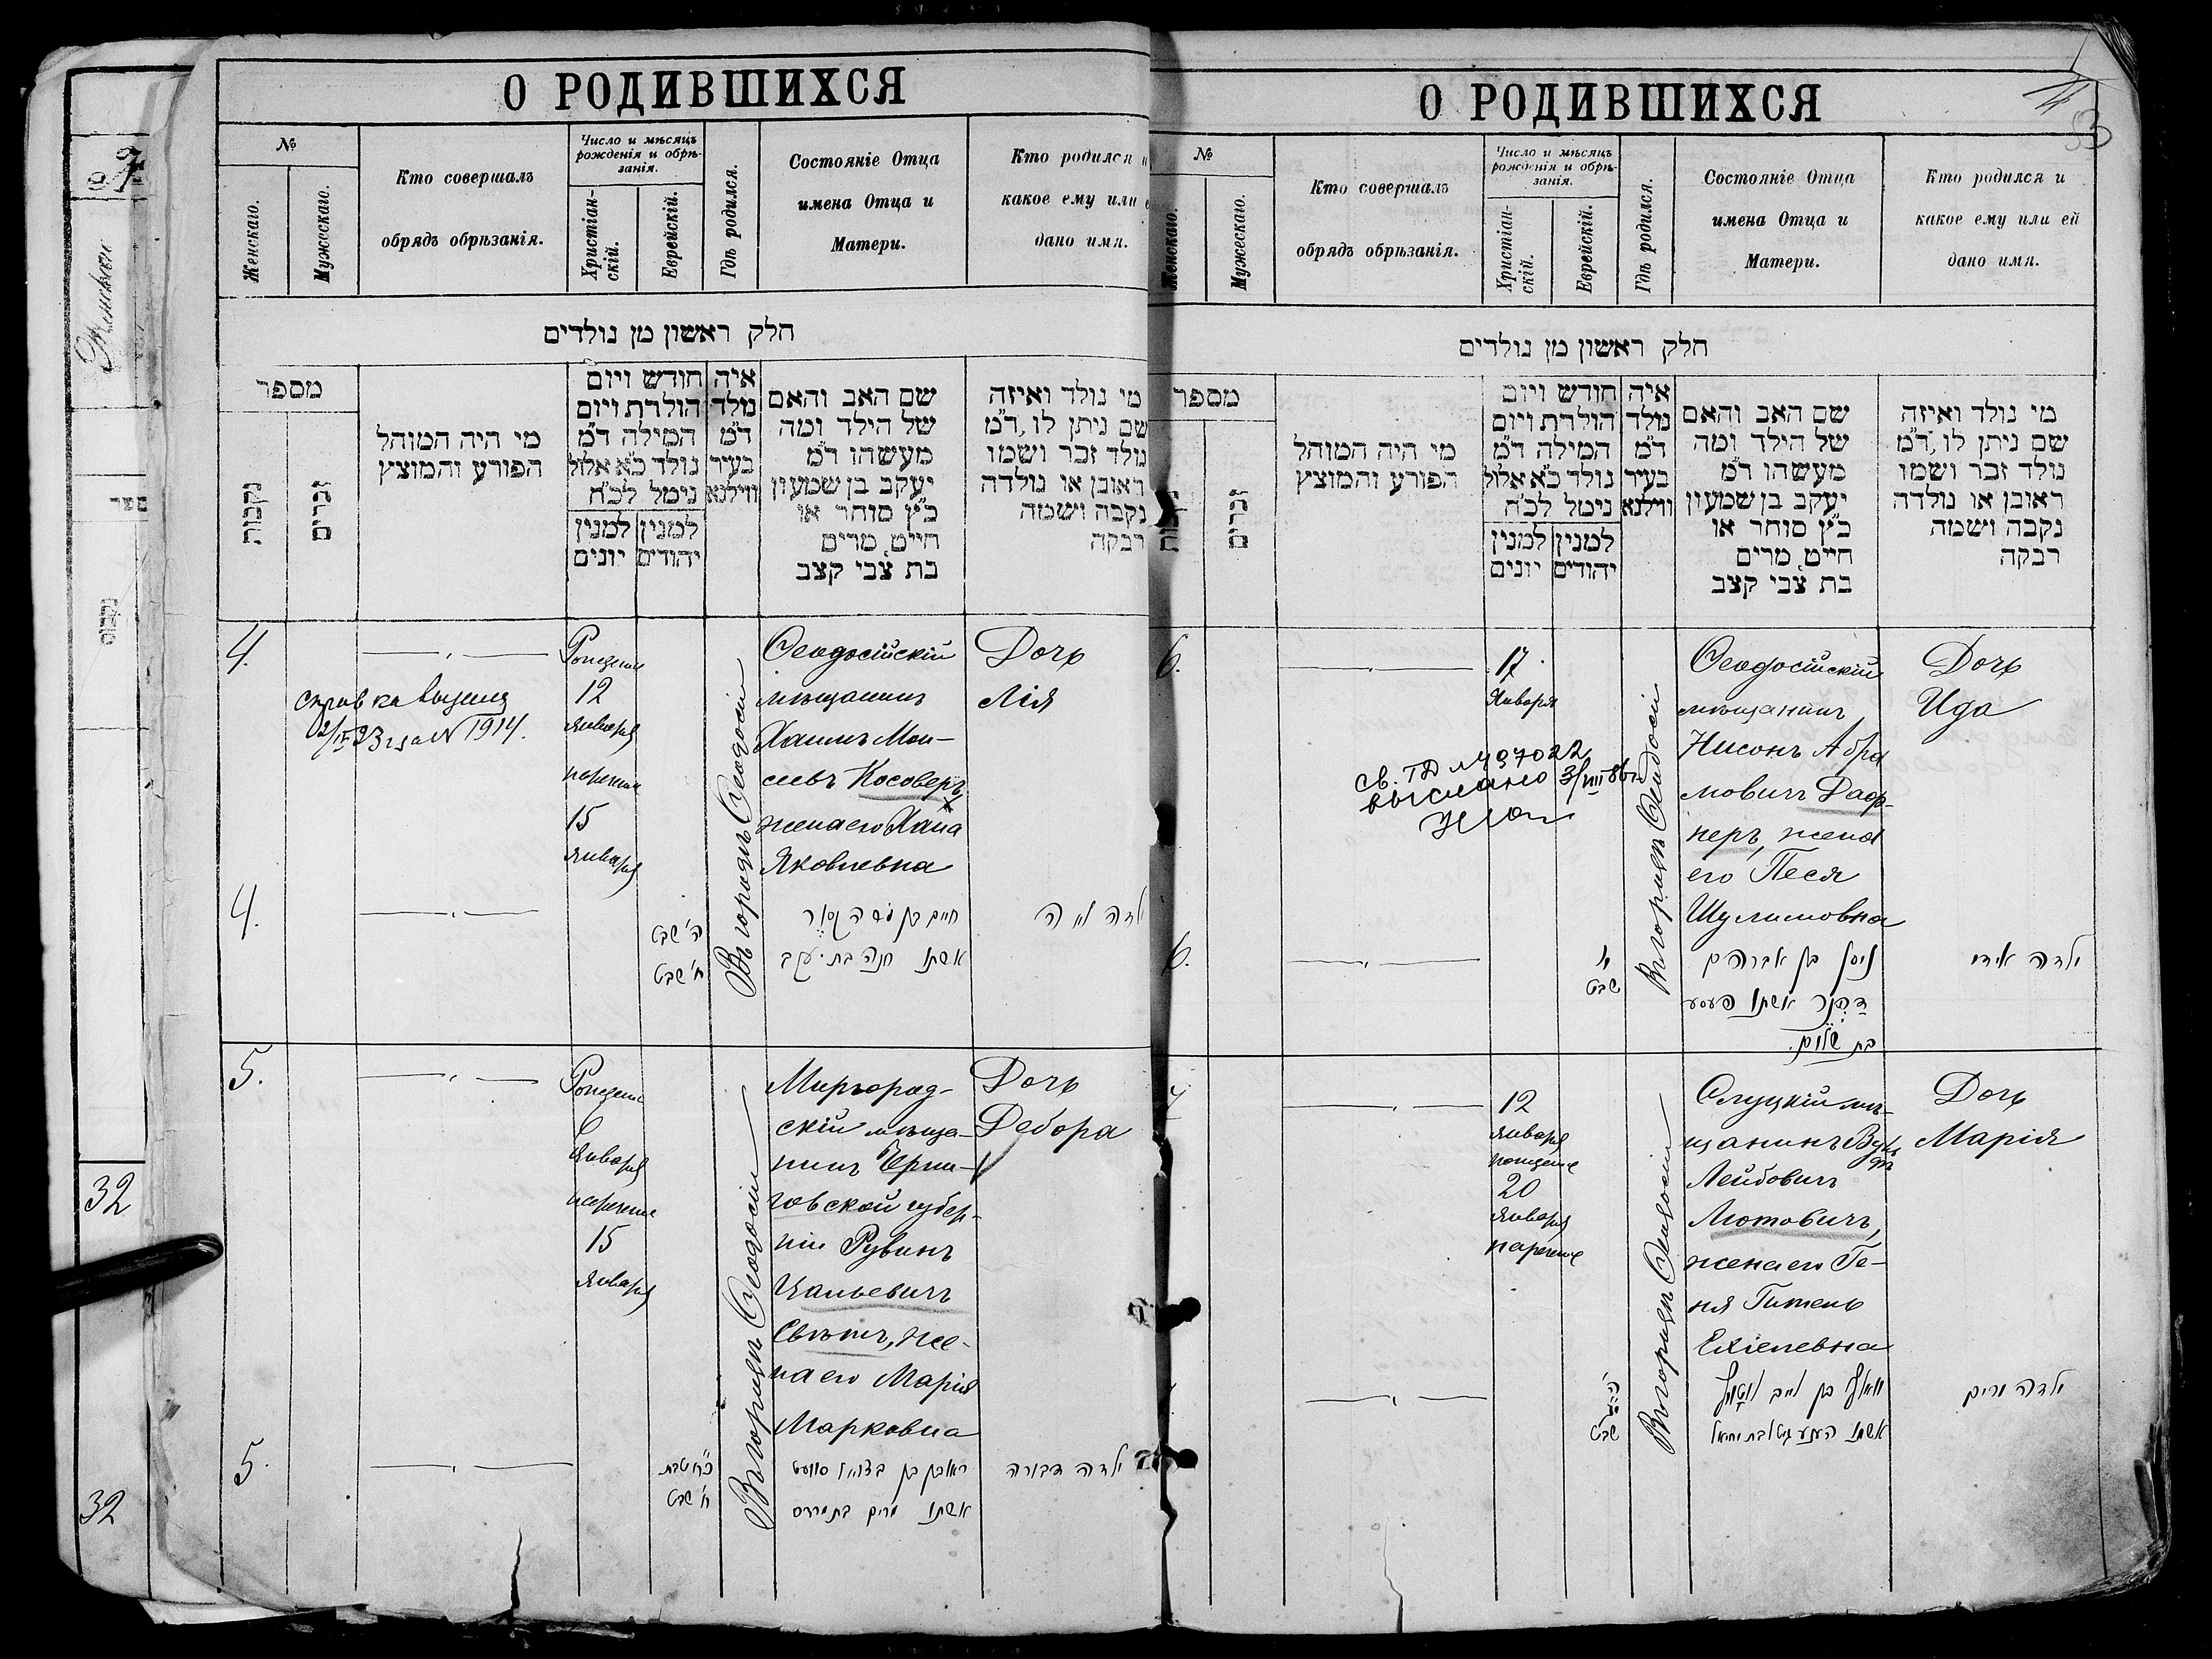 О РОДИВШИХСЯ
№
Женскаго.
Мужескаго.
Кто совершалъ
обрядъ обрѣзанія.
Число и мѣсяцъ
рожденія и обрѣ-
занія.
Христіан-
скій.
Еврейскій.
Гдѣ родился.
Состояніе Отца
имена Отца и
Матери.
Кто родился и
какое ему или
дано имя.
חלק ראשון מן נולדים
מספר
נקבות
זכרים
מי היה המוהל
הפורע והמוצץ
חודש ויום
הולדת ויום
המילה ד"מ
נולד כ"א אלול
נימל לכ"ח
למנין יונים
למנין יהודים
איה
נולד
ד"מ
בעיר
ווילנא
שם האב והאם
של הילד ומה
מעשהו ד"מ
יעקב בן שמעון
כ"ץ סוחר או
חייט, מרים
בת צבי קצב
מי נולד ואיזה
שם ניתן לו, ד"מ
נולד זכר ושמו
ראובן או נולדה
נקבה ושמה
רבקה
4.
справка выдана
1914.
Рожденіе
12
Января
нареченіе
15
Января
Въ городѣ Ѳеодосіи
Ѳеодосійскій
мѣщанинъ
Хаимъ Мои-
сѣевъ Косоверъ,
жена его Хана
Яковлевна
Дочь
Лія
4.
ה' שבט
ח' שבט
חיים בן משה קסוור
אשתו חנה בת יעקב
ילדה לאה
5.
Рожденіе
6
Января
нареченіе
15
Января
Въ городѣ Ѳеодосіи
Миргород-
скій мѣща-
нинъ Черни-
говской губер-
ніи Рувинъ
Цальевичъ
Свѣтъ, же-
на его Марія
Марковна
Дочь
Дебора
5.
כ"ח טבת
ח' שבט
ראובן בן
אשתו מרים
ילדה דבורה
32
32
О РОДИВШИХСЯ
№
Женскаго.
Мужескаго.
Кто совершалъ
обрядъ обрѣзанія.
Число и мѣсяцъ
рожденія и обрѣ-
занія.
Христіан-
скій.
Еврейскій.
Гдѣ родился.
Состояніе Отца
имена Отца и
Матери.
Кто родился и
какое ему или ей
дано имя.
חלק ראשון מן נולדים
מספר
זכרים
מי היה המוהל
הפורע והמוצץ
חודש ויום
הולדת ויום
המילה ד"מ
נולד כ"א אלול
נימל לכ"ח
למנין יונים
למנין יהודים
איה
נולד
ד"מ
בעיר
ווילנא
שם האב והאם
של הילד ומה
מעשהו ד"מ
יעקב בן שמעון
כ"ץ סוחר או
חייט, מרים
בת צבי קצב
מי נולד ואיזה
שם ניתן לו, ד"מ
נולד זכר ושמו
ראובן או נולדה
נקבה ושמה
רבקה
6.
св. ІД № 497022
выслано
17
Января
Въ городѣ Ѳеодосіи
Ѳеодосійскій
мѣщанинъ
Нисонъ Абра
мовичъ Дафр-
неръ, жена
его Песя
Шулимовна
Дочь
Ида
6.
י'
שבט
ניסן בן אברהם
אשתו פעסע
בת שלום
ילדה אידי
12
Января
рожденіе
20
Января
нареченіе
Въ городѣ Ѳеодосіи
Слуцкій мѣ-
щанинъ Вульфъ
Лейбовичъ
Лютовичъ,
жена его Ге-
ня Гитель
Ехіелевна
Дочь
Марія
שבט
וואלף בן לייב
אשתו העניע גיטל בת יחיאל
ילדה מרים